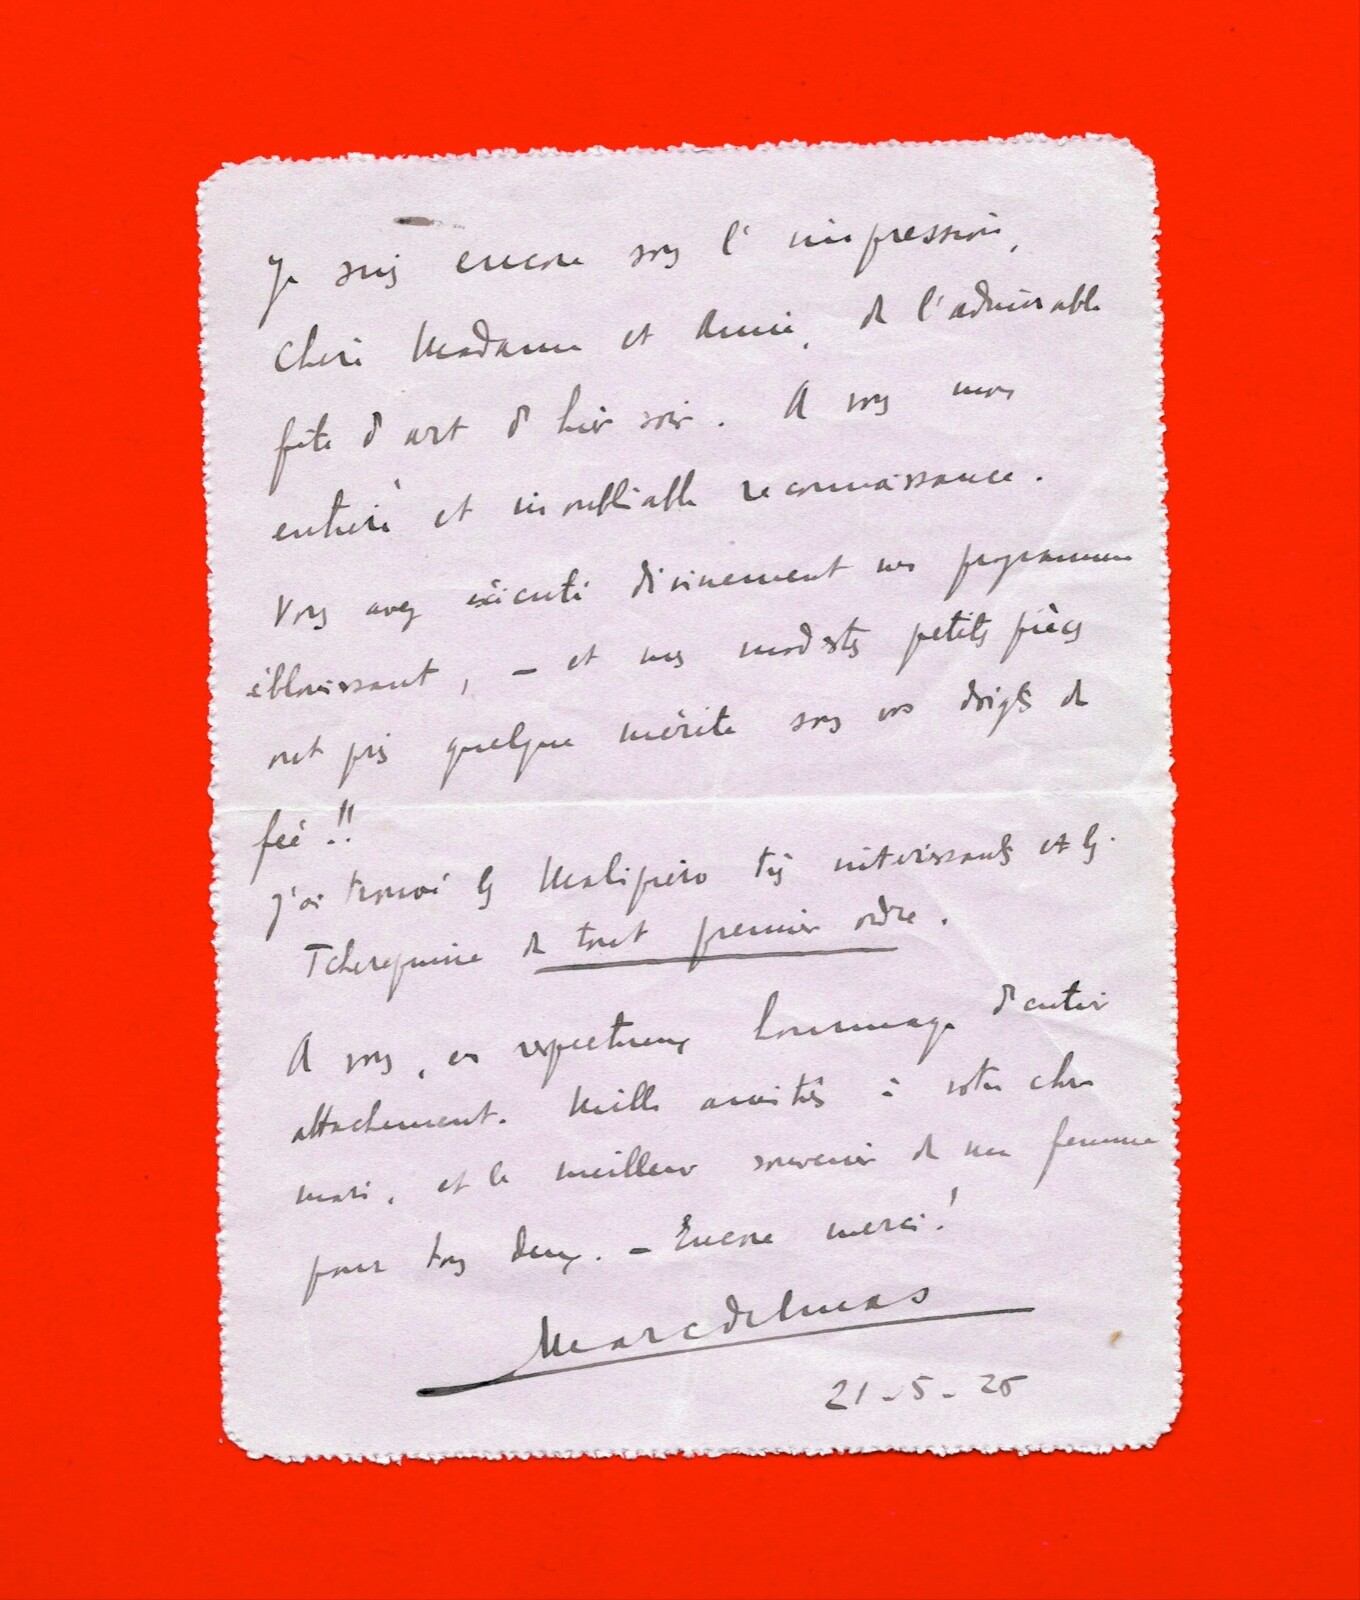 Je suis encore sous l'impression,
Chère Madame et Amie, de l'admirable
fête d'art d'hier soir. A vous mon
entière et inoubliable reconnaissance.
Vous avez exécuté divinement un programme
éblouissant, – et mes modestes petites pièces
ont pris quelque mérite sous vos doigts de
fée !!
J'ai trouvé les Malipiero très intéressants et les
Tcherepnine de tout premier ordre.
A vous, en respectueux hommage d'entier
attachement. Mille amitiés à votre cher
mari, et le meilleur souvenir de ma femme
pour tous deux. – Encore merci !
Marc Delmas
21-5-26